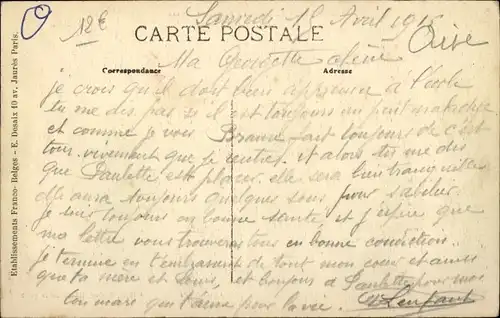 12€
Samedi 1 Avril 191
CARTE POSTALE
Oise
Ma Georgette chérie
Correspondance
Adresse
je crois qu'il doit bien apprendre à l'école
tu me dis pas s'il est toujours un peut malade
et comme je vous toujours de
tour vivement que je rentre et alors tu me dis
que Paulette est placer elle sera bien tranquille
elle aura toujours quelques sous pour s'abiller
je suis toujours en bonne santé et j'espère que
ma lettre vous trouveras tous en bonne condiction
je termine en t'embrassent de tout mon cœur et aussi
que ta mère et Louis et bonjour à Paulette pour moi
ton mari que t'aime pour la vie. Lenfant
Etablissements Franco-Belges - E. Desaix 40 av. Jean Jaurès Paris.